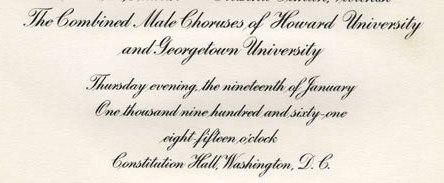 The Combined Male Choruses of Howard University
and Georgetown University
Thursday evening, the nineteenth of January
One thousand nine hundred and sixty-one
eight-fifteen o'clock
Constitution Hall, Washington, D. C.